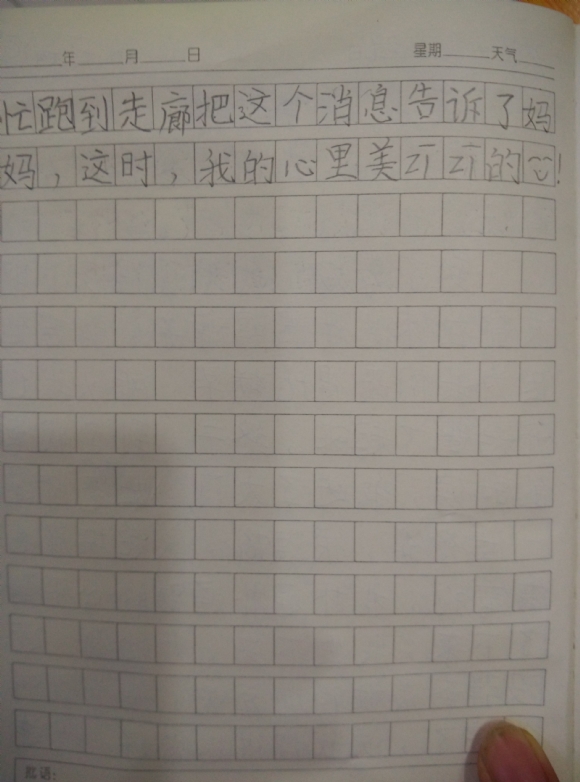 年 月 日 星期 天气
忙跑到走廊把这个消息告诉了妈
妈，这时，我的心里美孑孑的!
批语: